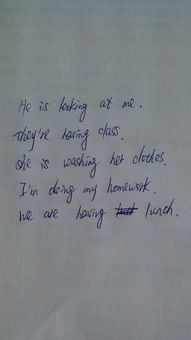 He is looking at me.
They're having class.
she is washing her clothes.
I'm doing my homework.
we are having lunch.